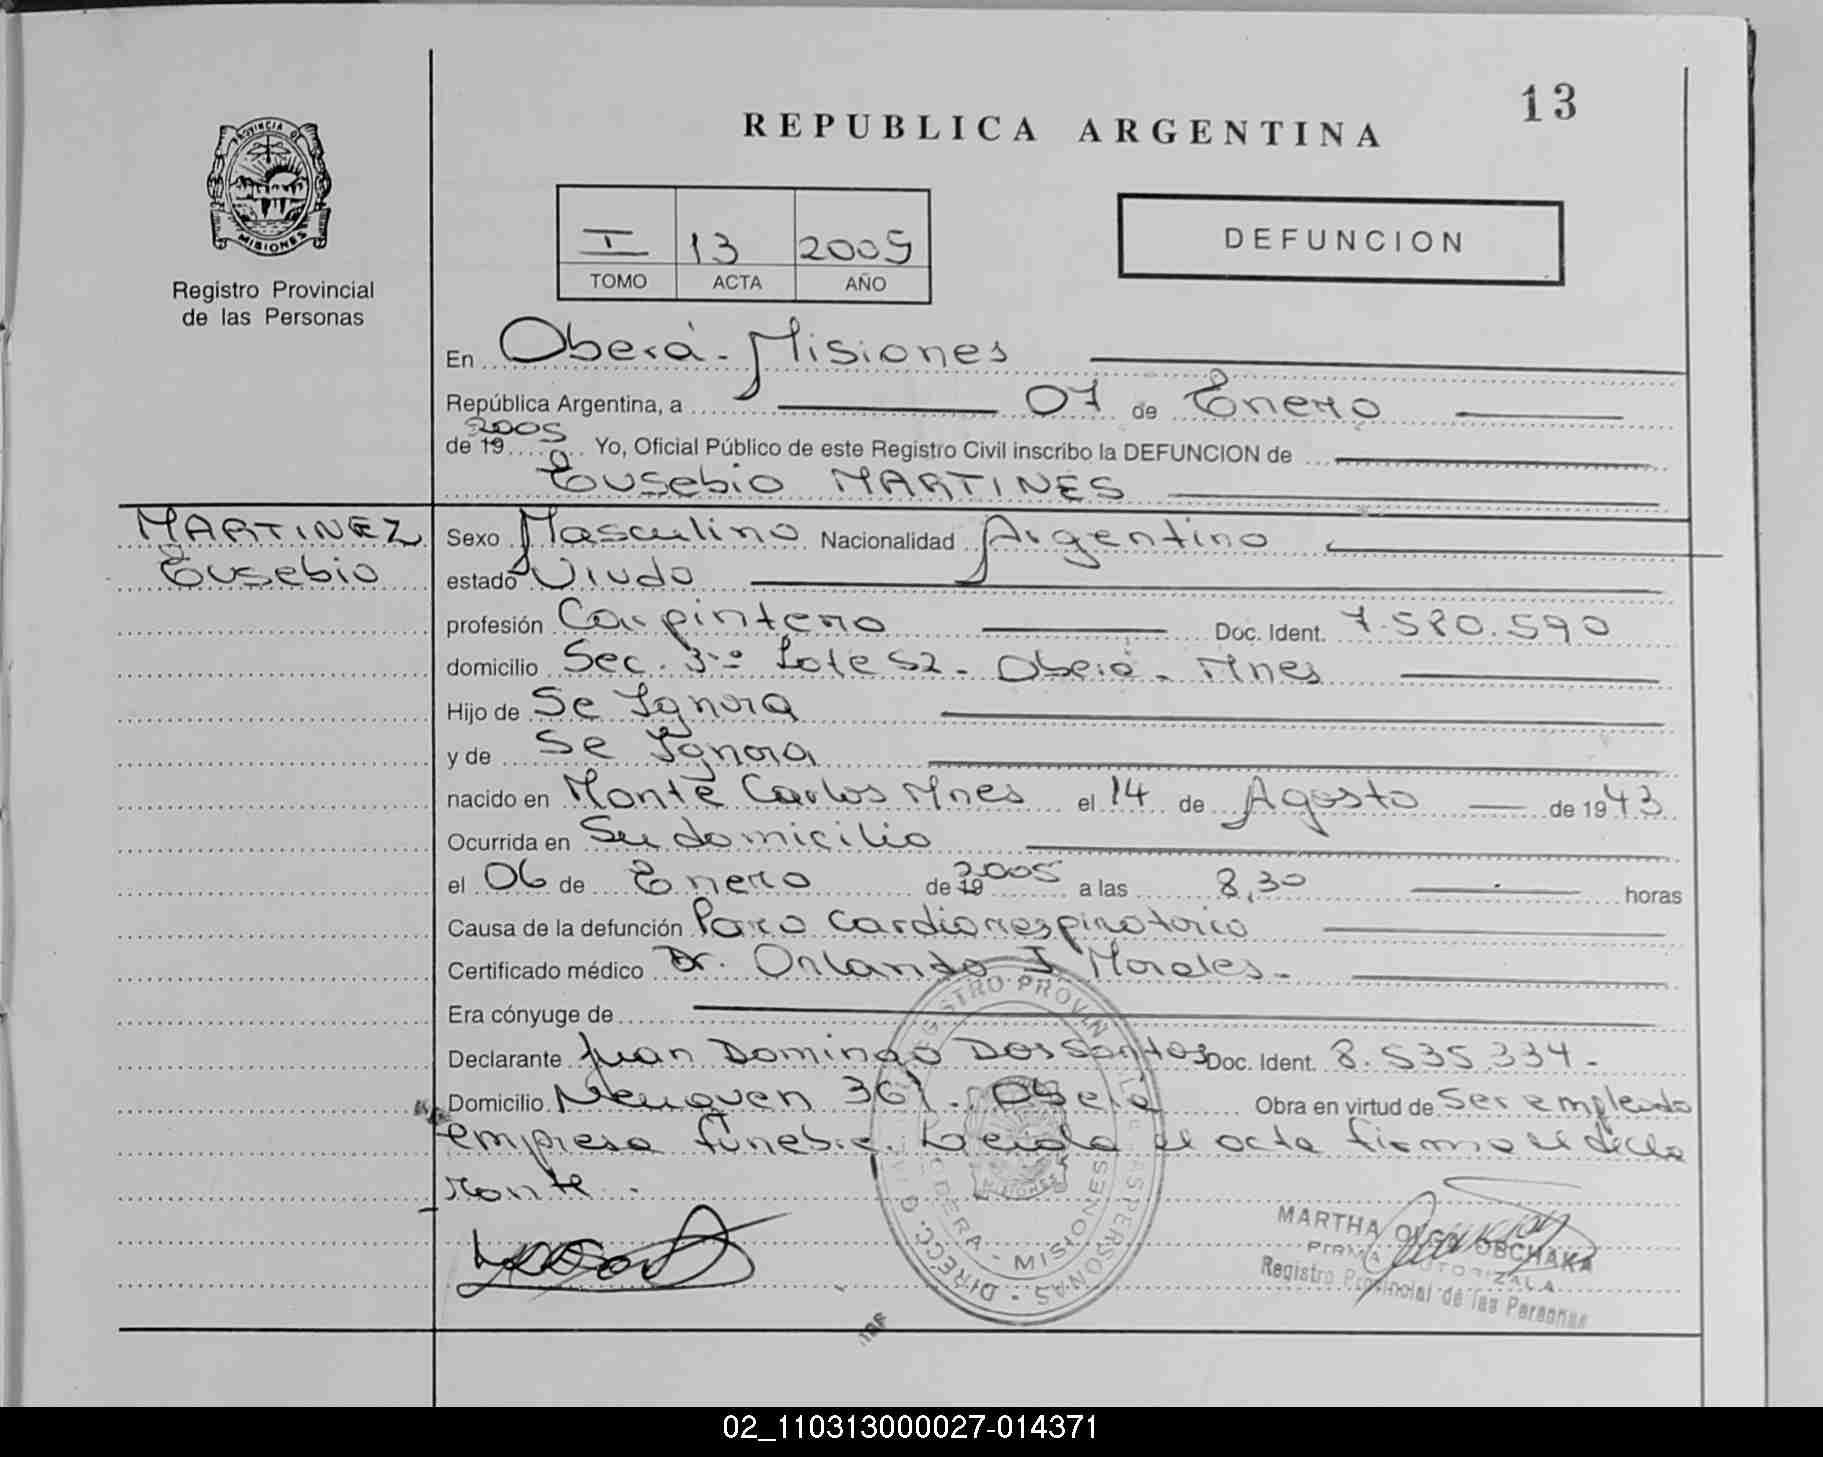 13
REPUBLICA ARGENTINA
PROVINCIA DE
MISIONES
Registro Provincial
de las Personas
I 13 2005
TOMO ACTA AÑO
DEFUNCION
En Oberá - Misiones
República Argentina, a 07 de Enero
de 19 2005 Yo, Oficial Público de este Registro Civil inscribo la DEFUNCION de
Eusebio MARTINES
MARTINEZ
Eusebio
Sexo Masculino Nacionalidad Argentino
estado Viudo
profesión Carpintero Doc. Ident. 7.580.590
domicilio Sec. 3ra Lote 52 - Oberá - Mnes
Hijo de Se Ignora
y de Se Ignora
nacido en Monte Carlos Mnes el 14 de Agosto de 1943
Ocurrida en Su domicilio
el 06 de Enero de 19 2005 a las 8,30 horas
Causa de la defunción Paro Cardiorrespiratorio
Certificado médico Dr. Orlando J Morales -
Era cónyuge de
Declarante Juan Domingo Dos Santos Doc. Ident. 8.535.334 -
Domicilio Neuquen 361 - Oberá Obra en virtud de Ser empleado
empresa fúnebre. Leida el acta firma el decla
rante -
MARTHA OLGA OBCHAKA
FIRMA AUTORIZADA
Registro Provincial de las Personas
02_110313000027-014371